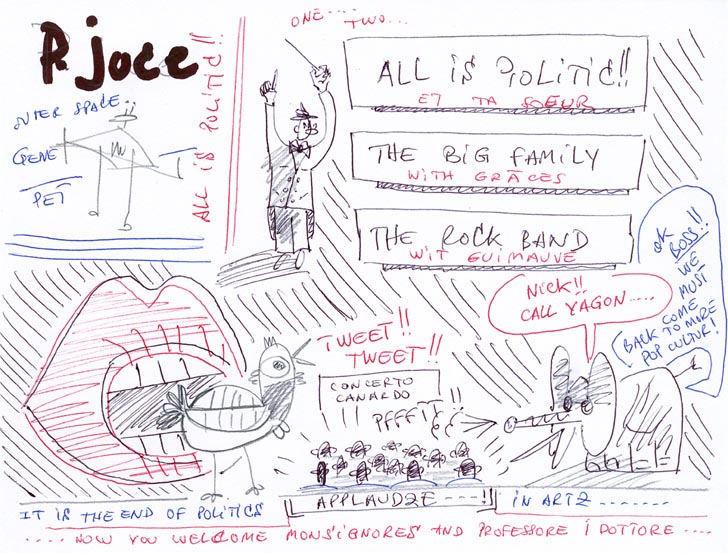 P. joce
OUTER SPACE
GENE
PET
ALL IS POLITIC!!
ONE.....
TWO...
ALL iS POLiTiC!!
ET TA SOEUR
THE BiG FAMiLY
WiTH GRÂCES
THE ROCK BAND
WiT GUiMAUVE
OK
BOSS!!
WE
MUST
BACK COME
TO MORE
POP CULTUR!
NiCK!!
CALL YAGON.....
TWEET!!
TWEET!!
CONCERTO
CANARDO
PFFFiT
!!
APPLAUDZE ----!
IT IS THE END OF POLITICS
iN ARTZ -------
..... NOW YOU WELCOME MONSiGNORES AND PROFESSORE i DOTTORE ....